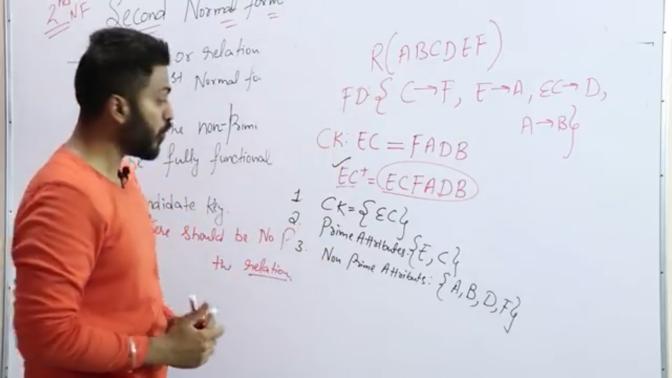 2nd NF Second Normal form
or relation
st Normal fo
he non-primi
fully functional
ndidate key.
ere should be No P
the relation
R(ABCDEF)
FD{ C→F, E→A, EC→D,
A→B}
CK: EC = FADB
✓EC⁺ = ECFADB
1 CK = {EC}
2. Prime Attributes: {E, C}
3. Non Prime Attributs: {A, B, D, F}